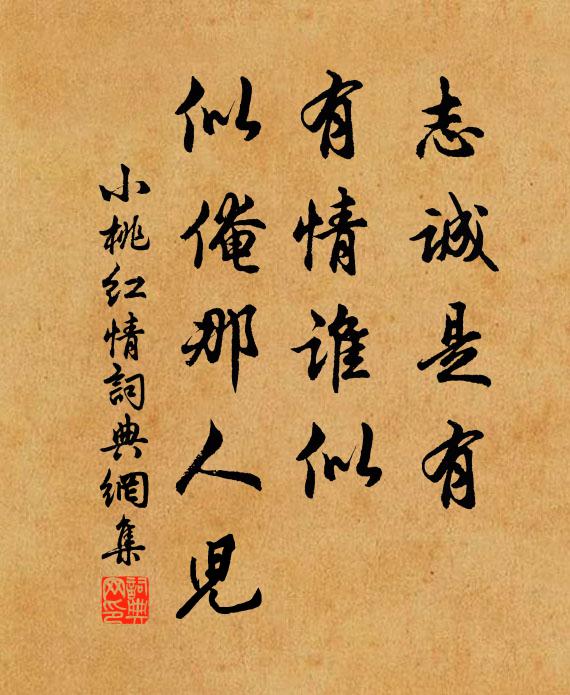 志誠是有
有情誰似
似俺那人兒
小桃红情詞典網集
詞典網印